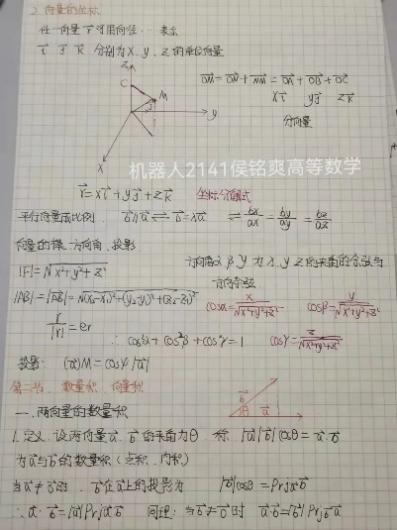 2. 向量的坐标
任一向量 r⃗ 可用向径 … 表示
i⃗ j⃗ k⃗ 分别为 x, y, z 的单位向量
z
C
M
y
x
OM = ON + NM = OA + OB + OC
xi⃗ yj⃗ zk⃗
分向量
机器人2141侯铭爽高等数学
r⃗ = xi⃗ + yj⃗ + zk⃗ 坐标分解式
平行向量成比例. b⃗∥a⃗ ⇌ b⃗=λa⃗ ⇌ bx/ax = by/ay = bz/az
向量的模、方向角、投影
方向角α β γ 为 x, y, z 的夹角的余弦为
方向余弦
|r⃗| = √x²+y²+z²
|AB| = |AB⃗| = √(x₂-x₁)²+(y₂-y₁)²+(z₂-z₁)²
cosα = x/√x²+y²+z² cosβ = y/√x²+y²+z²
r⃗/|r⃗| = er
∴ cos²α + cos²β + cos²γ = 1 cosγ = z/√x²+y²+z²
投影: (a⃗)M = cosφ|a⃗|
第二节. 数量积 向量积
一. 两向量的数量积
b⃗
θ a⃗
1. 定义. 设两向量 a⃗. b⃗ 的夹角为θ 称 |a⃗||b⃗|cosθ = a⃗·b⃗
为 a⃗ 与 b⃗ 的数量积 (点积. 内积)
当 a⃗≠0⃗ 时. b⃗ 在 a⃗ 上的投影为 |b⃗|cosθ = Prj a⃗ b⃗
∴ a⃗·b⃗ = |a⃗| Prj a⃗ b⃗ 同理: 当 b⃗≠0⃗ 时 a⃗·b⃗ = |b⃗| Prj b⃗ a⃗